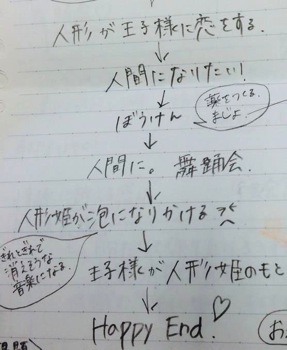 人形が王子様に恋をする.
人間になりたい!
ぼうけん
薬をつくる.
まじょ.
人間に。舞踊会.
人形姫が泡になりかける
ぎれとぎれで
消えそうな
音楽になる.
王子様が人形姫のもと
Happy End!
お